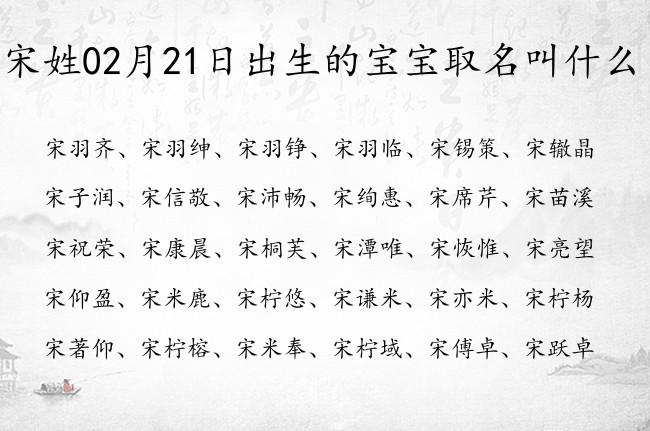 宋姓02月21日出生的宝宝取名叫什么
宋羽齐、宋羽绅、宋羽铮、宋羽临、宋锡策、宋辙晶
宋子润、宋信敬、宋沛畅、宋绚惠、宋席芹、宋苗溪
宋祝荣、宋康晨、宋桐芙、宋潭唯、宋恢惟、宋亮望
宋仰盈、宋米鹿、宋柠悠、宋谦米、宋亦米、宋柠杨
宋著仰、宋柠榕、宋米奉、宋柠域、宋傅卓、宋跃卓